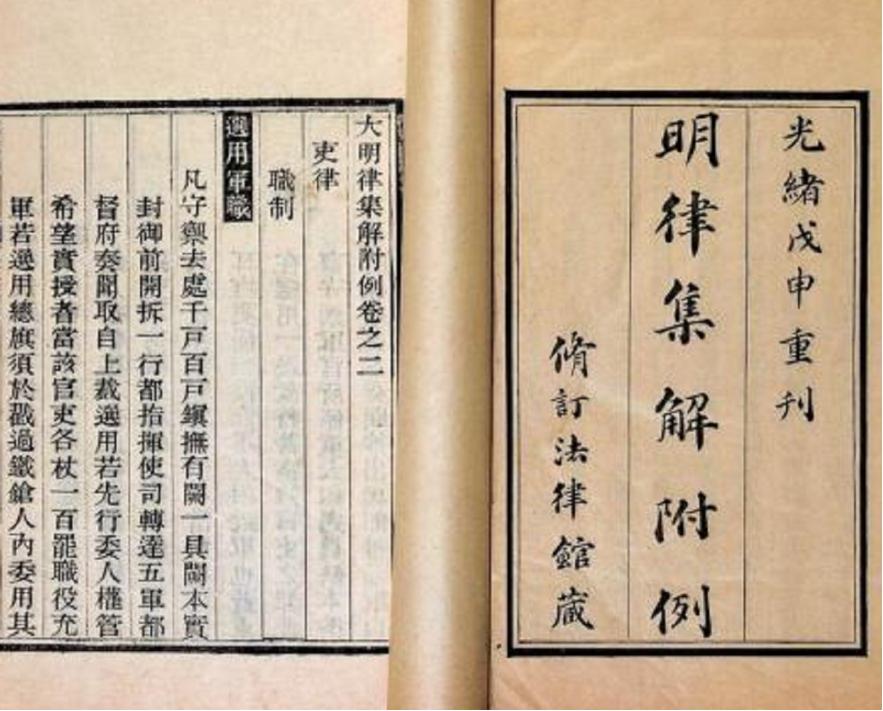 光緒戊申重刊
明律集解附例
脩訂法律館藏
大明律集解附例卷之二
吏律
職制
選用軍職
凡守禦去處千戶百戶鎮撫有闕一具闕本實
封御前開拆一行都指揮使司轉達五軍都
督府奏聞取自上裁選用若先行委人權管
希望實授者當該官吏各杖一百罷職役充
軍若選用總旗須於戳過鐵鎗人內委用其